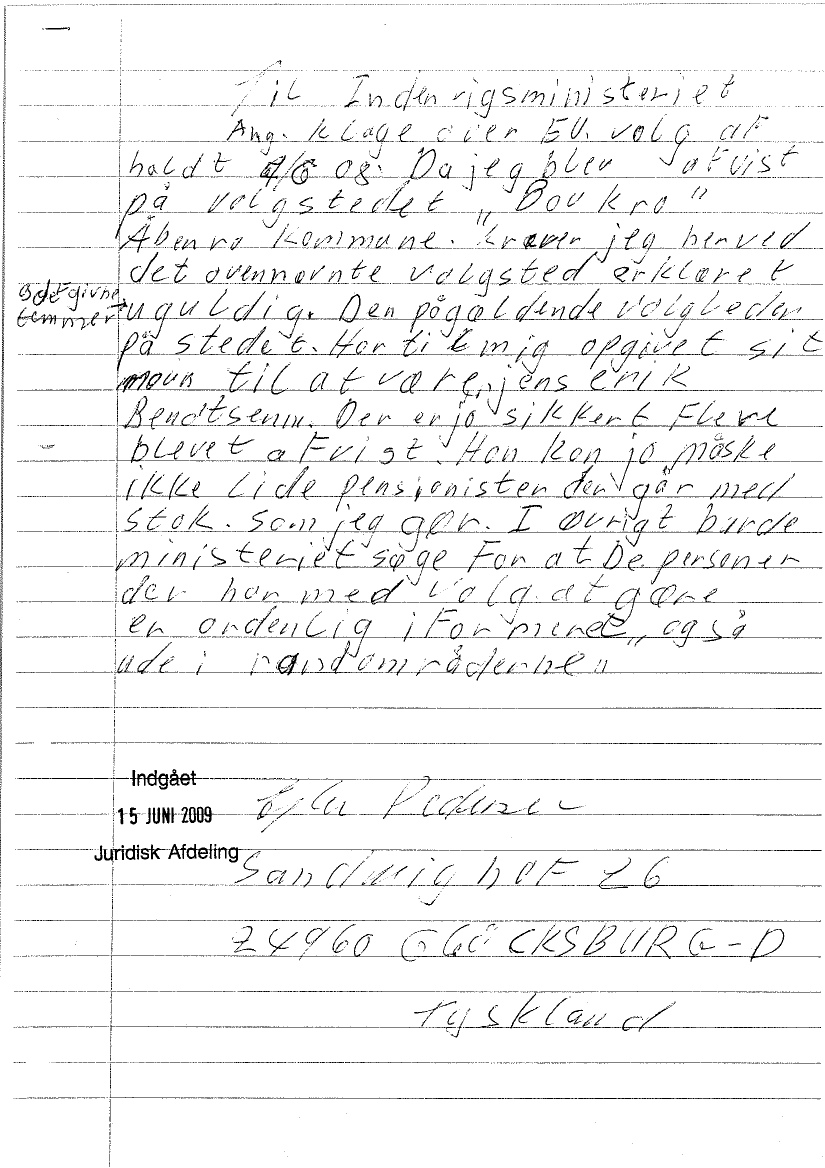 Til Indenrigsministeriet
Ang. klage over EU. valg af
holdt 7/6 08. Da jeg blev afvist
på valgstedet „Bov kro"
Åbenra Kommune. kræver jeg herved
det ovennævnte valgsted erklæret
uguldig. Den pågældende valgleder
på stedet. Har til mig opgivet sit
navn til at være, jens erik
Bendtsenn. Der er jo sikkert Flere
blevet aFvist. Han kan jo måske
ikke lide pensjonister der går med
stok. som jeg gør. I øvrigt burde
ministeriet søge For at De personer
der har med valg at gøre
er ordenlig iFormeret „også
ude i randområderne"
Indgået
15 JUNI 2009
Juridisk Afdeling
Pedersen
Sandwighof 26
24960 GLÜCKSBURG-D
Tyskland